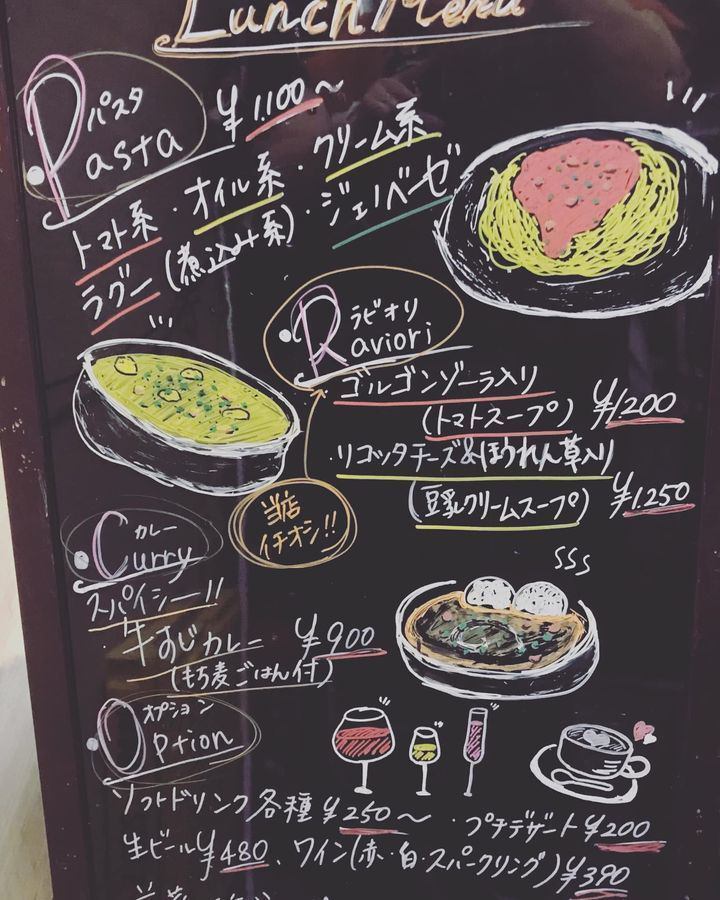 Lunch Menu
パスタ
Pasta ¥1,100〜
トマト系・オイル系・クリーム系
ラグー(煮込み系)・ジェノベーゼ
ラビオリ
Raviori
ゴルゴンゾーラ入り
(トマトスープ) ¥1,200
・リコッタチーズ&ほうれん草入り
(豆乳クリームスープ) ¥1,250
当店
イチオシ!!
カレー
Curry
スパイシー!!
牛すじカレー ¥900
(もち麦ごはん付)
オプション
Option
ソフトドリンク各種 ¥250〜 ・プチデザート ¥200
生ビール ¥480、ワイン(赤・白・スパークリング) ¥390